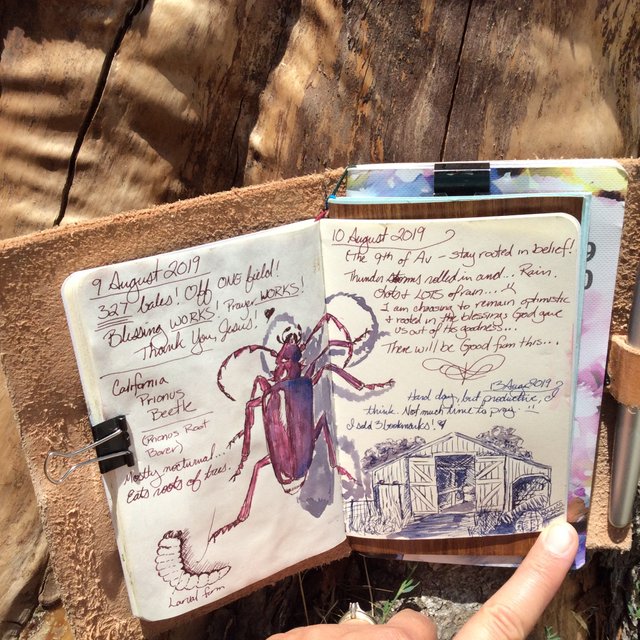 9 August 2019
327 bales! Off ONE field!
Blessing WORKS! Prayer WORKS!
Thank You, Jesus!
California
Prionus
Beetle
(Prionus Root
Borer)
Mostly nocturnal...
Eats roots of trees.
Larval form
10 August 2019
(The 9th of Av - stay rooted in belief!
Thunder storms rolled in and... Rain.
LOTS of rain...
I am choosing to remain optimistic
+ rooted in the blessings God gave
us out of His goodness...
There will be Good from this...
13 Aug 2019
Hard day, but productive, I
think. Not much time to pray.
I sold 3 bookmarks!
9